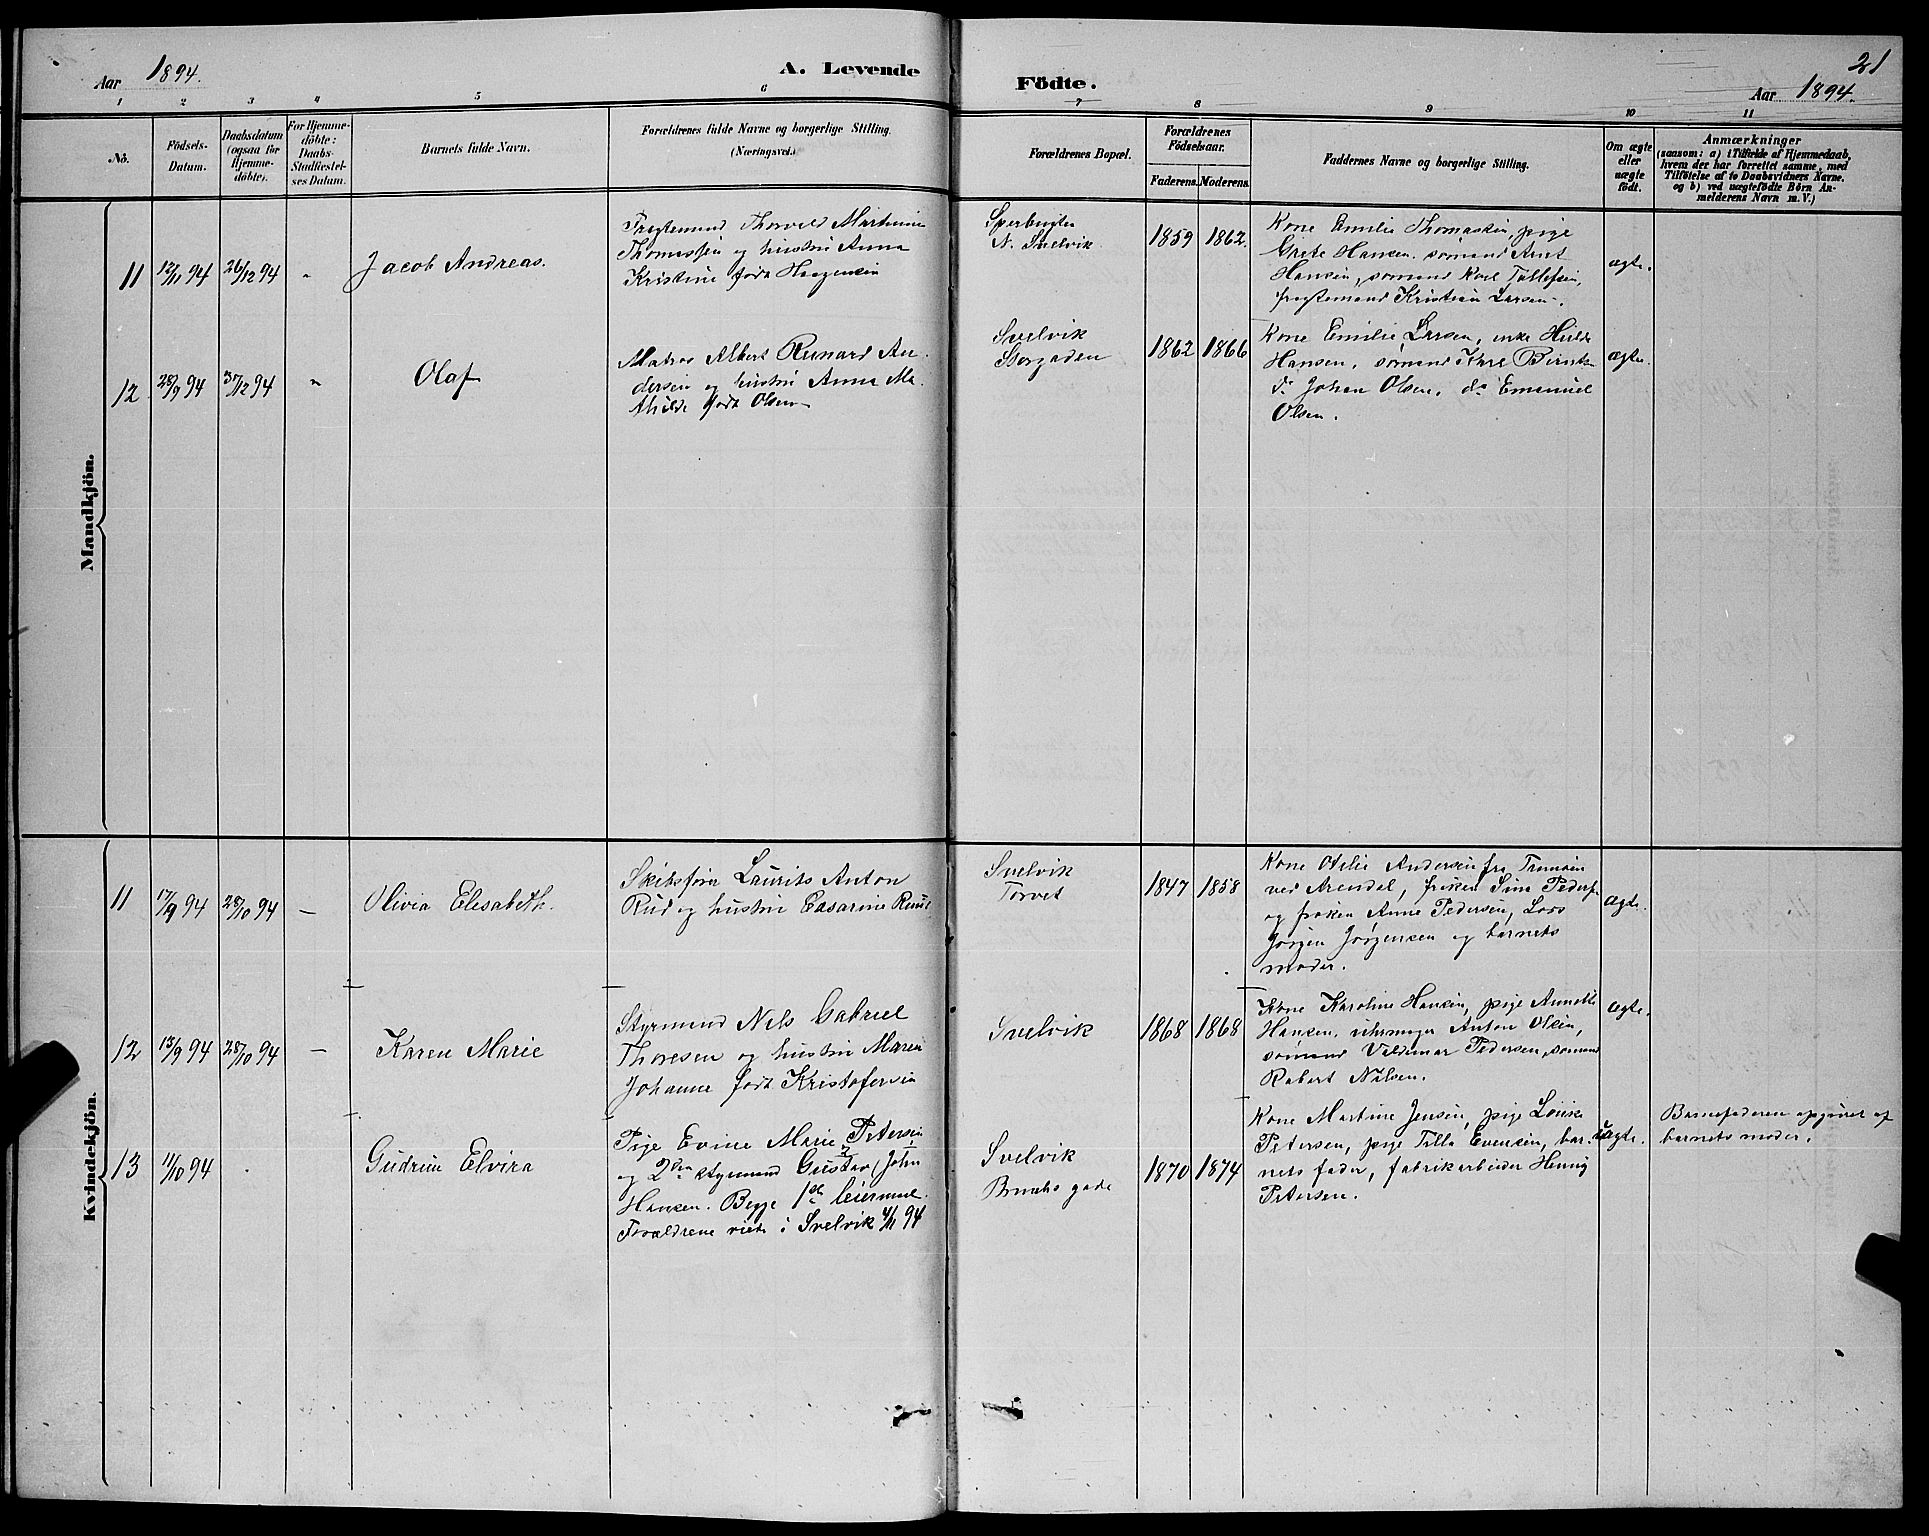 Aar 1894.
A. Levende
Födte.
21
Aar 1894.
1 2 3 4 5 6 7 8 9 10 11
No.
Födsels-
Datum.
Daabsdatum
(ogsaa for
Hjemme-
döbte).
For Hjemme-
döbte:
Daabs-
Stadfæstel-
ses Datum.
Barnets fulde Navn.
Forældrenes fulde Navne og borgerlige Stilling.
(Næringsvei.)
Forældrenes Bopæl.
Forældrenes
Födselsaar.
Faderens. Moderens.
Faddernes Navne og borgerlige Stilling.
Om ægte
eller
uægte
födt.
Anmærkninger
(saasom: a) i Tilfælde af Hjemmedaab,
hvem der har forrettet samme, med
Tilföielse af to Daabsvidners Navne,
og b) ved uægtefödte Börn An-
melderens Navn m. V.)
Mandkjön.
11
12/11 94
26/12 94
"
Jacob Andreas.
Thorvald
Thomassen og hustru Anna
Kristine født Haagensen
N. Svelvik
1859
1862.
Kone Emilie Thomassen, pige
Grete Hansen, sømand Arnt
Hansen, sømand Karl Tollefsen,
Kristian Larsen.
ægte.
12
28/9 94
12 94
"
Olaf
Matros Albert An-
dersen og hustru Anna Ma-
thilde født Olsen
Svelvik
Storgaden
1862
1866
Kone Emilie Larsen, enke
Hansen, sømand
do Johan Olsen, do Emanuel
Olsen.
ægte.
Kvindekjön.
11
17/9 94
28/10 94
—
Olivia Elisabeth.
Skibsfører Laurits Anton
Rud og hustru
Svelvik
Torvet
1847
1858
Kone Otilie Andersen fra
ved Arendal, frøken Pedersen
og frøken Anna Pedersen, Lods
Jørgen Jørgensen og barnets
moder.
ægte.
12
13/9 94
28/10 94
—
Karen Marie
Styrmand Nils Gabriel
Thoresen og hustru Maren
Johanne født Kristofersen
Svelvik
1868
1868
Kone Karoline Hansen, pige
Hansen, uhrmager Anton Olsen,
sømand Valdemar Pedersen, sømand
Robert Nilsen.
ægte.
13
11/10 94
Gudrun Elvira
Pige Evine Marie Petersen
og 2den styrmand Gustav John
Hansen. Begge 1ste leiermaal.
Forældrene viet i Svelvik 4/11 94
Svelvik
gade
1870
1874
Kone Martine Jensen, pige Louise
Petersen, pige Tilla Evensen, bar-
nets fader, fabrikarbeider Henrig
Petersen.
uægte.
Barnefaderen opgivet af
barnets moder.